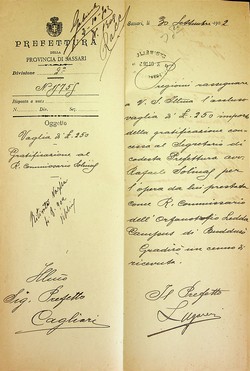 PREFETTURA
DELLA
PROVINCIA DI SASSARI
Divisione 2ª
Risposta a nota
N. Div. Sez.
Oggetto
Vaglia di £. 250
Gratificazione al
R. Commissario Solinas
Illmo
Sig. Prefetto
Cagliari
Sassari, li 30 Settembre 1902
Pregiomi rassegnare
a V. S. Illma l'accluso
vaglia di £. 250 importo
della gratificazione con
cessa al Segretario di
codesta Prefettura cav.
Rafaele Solinas per
l'opera da lui prestata
come R. Commissario
dell'Orfanotrofio Ledda
Campus di Buddusò
Gradirò un cenno di
ricevuta.
Il Prefetto